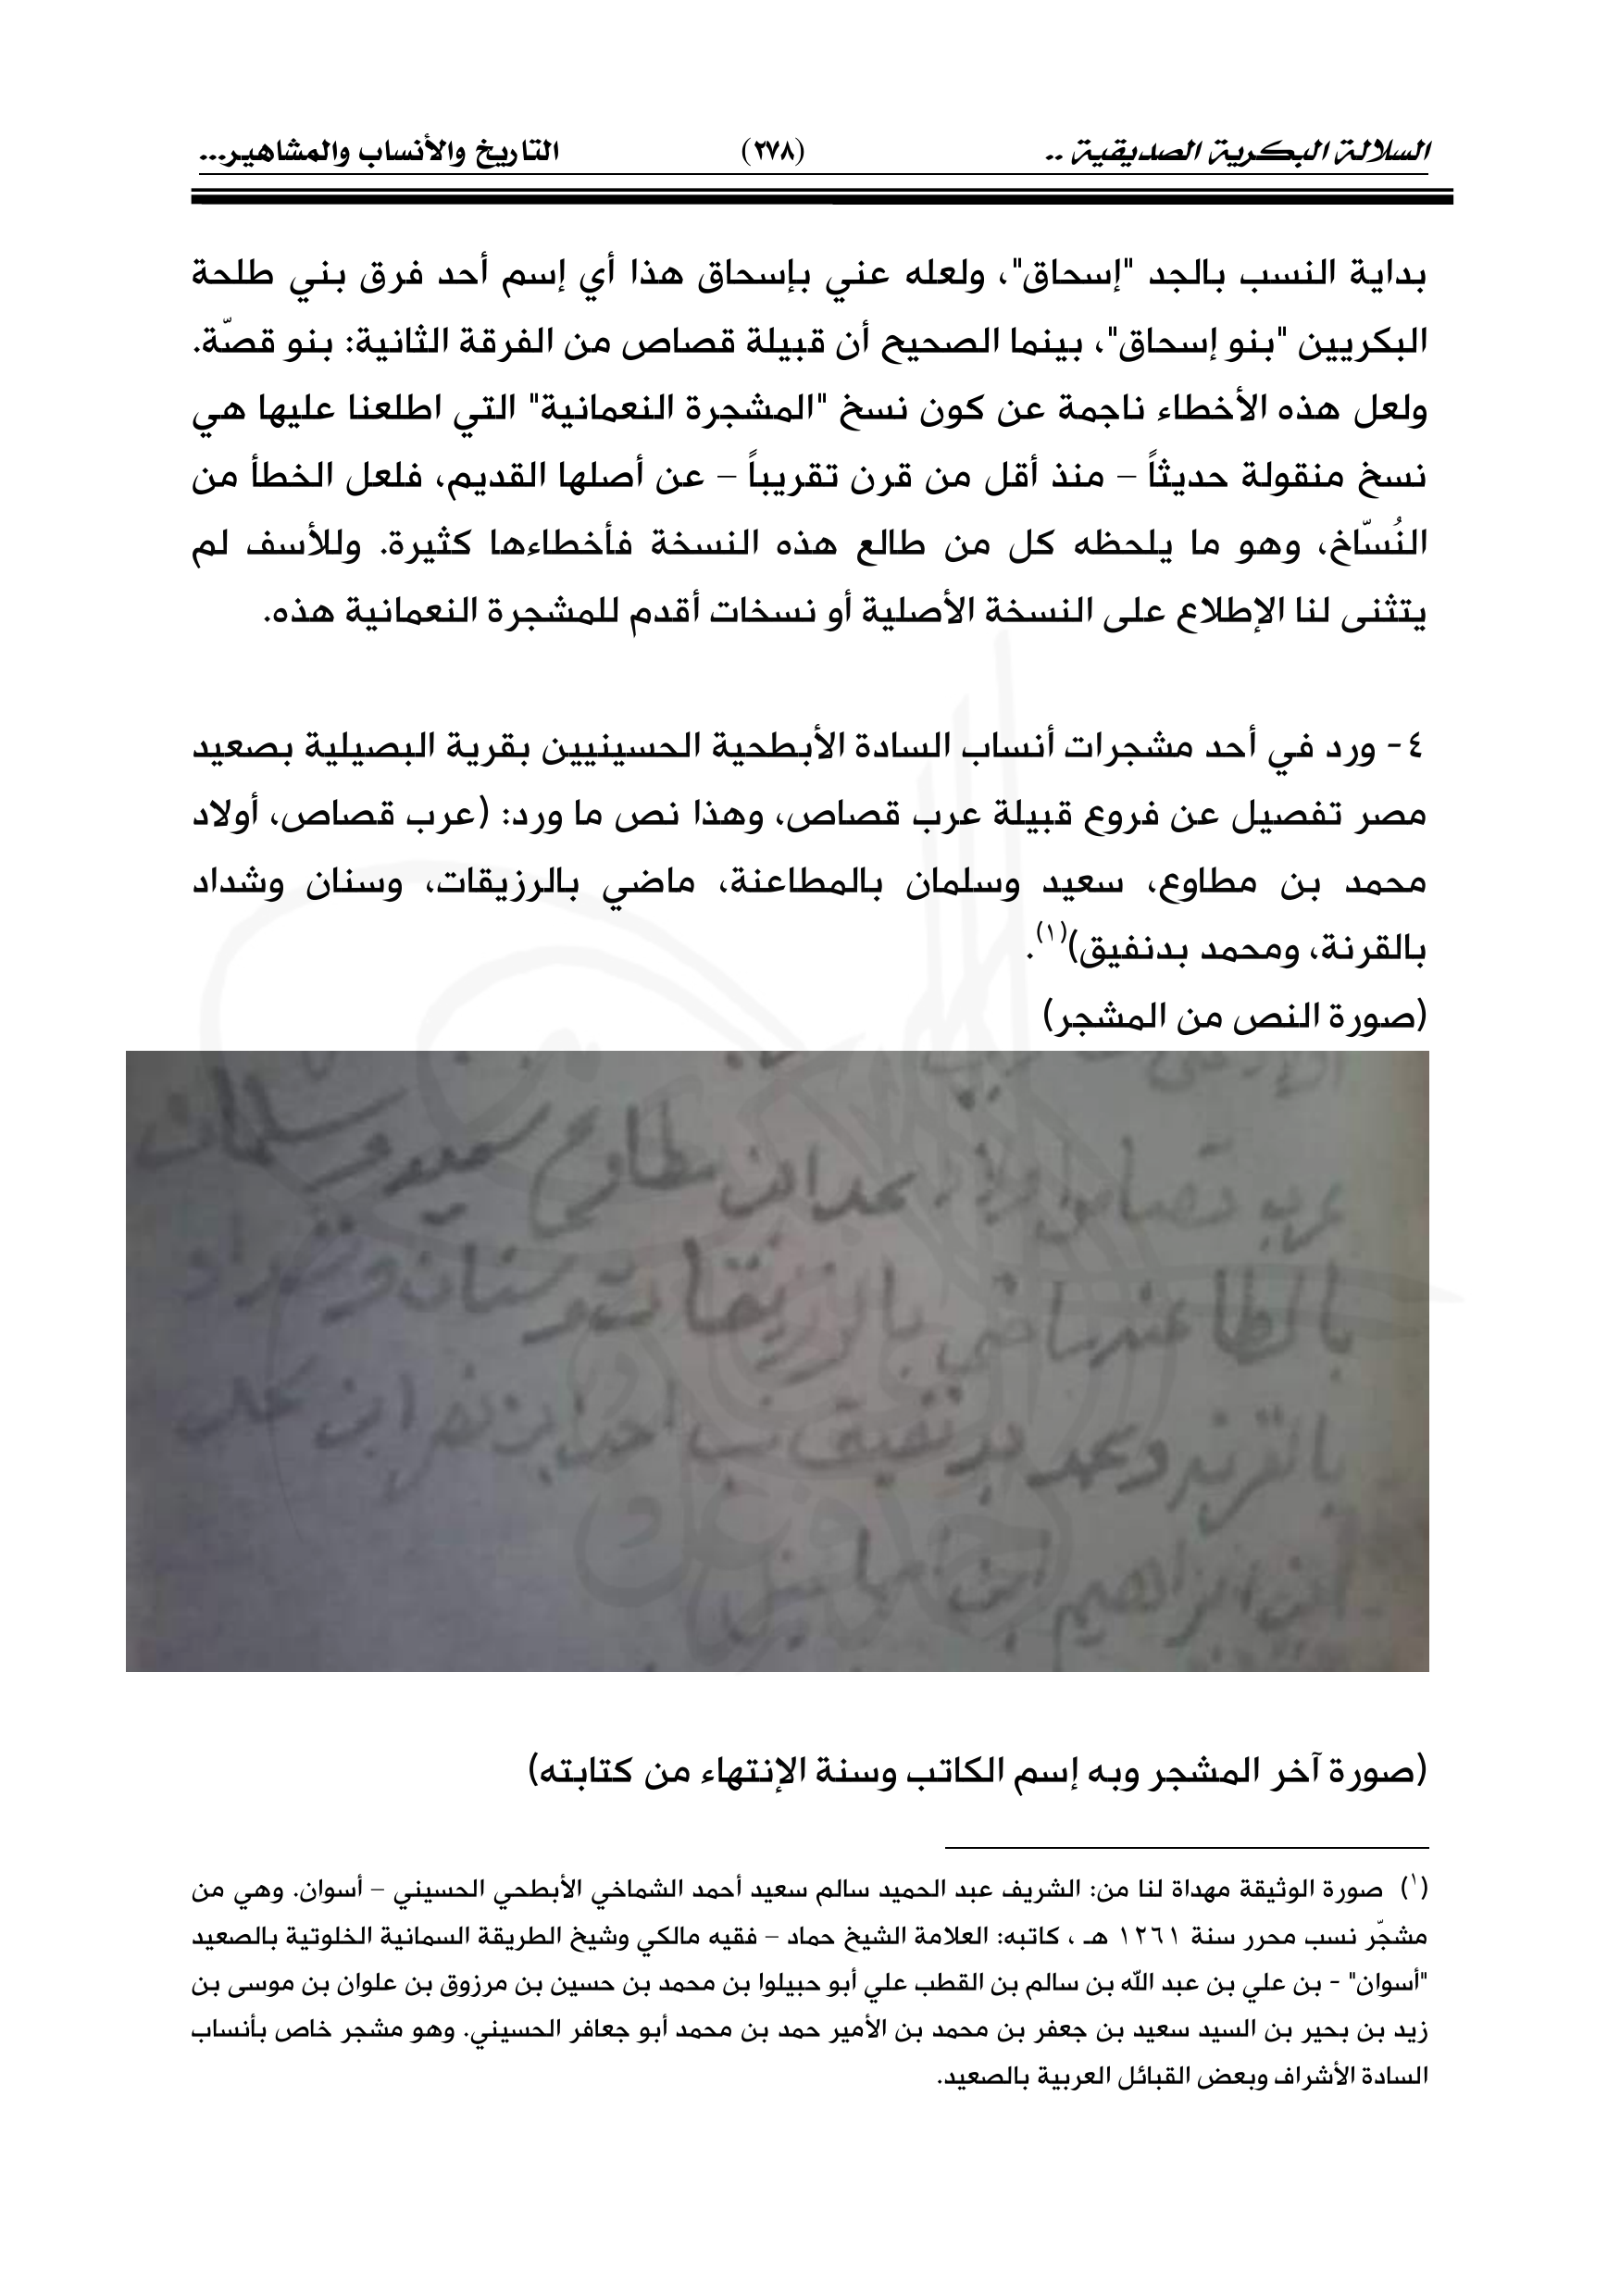 السلالة البكرية الصديقية ..
(٢٧٨)
التاريخ والأنساب والمشاهير...
بداية النسب بالجد "إسحاق"، ولعله عني بإسحاق هذا أي إسم أحد فرق بني طلحة
البكريين "بنو إسحاق"، بينما الصحيح أن قبيلة قصاص من الفرقة الثانية: بنو قصّة.
ولعل هذه الأخطاء ناجمة عن كون نسخ "المشجرة النعمانية" التي اطلعنا عليها هي
نسخ منقولة حديثاً – منذ أقل من قرن تقريباً – عن أصلها القديم، فلعل الخطأ من
النُسّاخ، وهو ما يلحظه كل من طالع هذه النسخة فأخطاءها كثيرة. وللأسف لم
يتثنى لنا الإطلاع على النسخة الأصلية أو نسخات أقدم للمشجرة النعمانية هذه.
٤- ورد في أحد مشجرات أنساب السادة الأبطحية الحسينيين بقرية البصيلية بصعيد
مصر تفصيل عن فروع قبيلة عرب قصاص، وهذا نص ما ورد: (عرب قصاص، أولاد
محمد بن مطاوع، سعيد وسلمان بالمطاعنة، ماضي بالرزيقات، وسنان وشداد
بالقرنة، ومحمد بدنفيق)(١).
(صورة النص من المشجر)
عرب قصاص اولاد محمد ابن مطاوع سعيد وسلمان
بالمطاعنه ماضي بالرزيقات وسنان وشداد
بالقرنه ومحمد بدنفيق نسب احمد بن نصر ابن
ابن ابراهيم ابن اسماعيل
(صورة آخر المشجر وبه إسم الكاتب وسنة الإنتهاء من كتابته)
(١) صورة الوثيقة مهداة لنا من: الشريف عبد الحميد سالم سعيد أحمد الشماخي الأبطحي الحسيني – أسوان. وهي من
مشجّر نسب محرر سنة ١٢٦١ هـ ، كاتبه: العلامة الشيخ حماد – فقيه مالكي وشيخ الطريقة السمانية الخلوتية بالصعيد
"أسوان" - بن علي بن عبد الله بن سالم بن القطب علي أبو حبيلوا بن محمد بن حسين بن مرزوق بن علوان بن موسى بن
زيد بن بحير بن السيد سعيد بن جعفر بن محمد بن الأمير حمد بن محمد أبو جعافر الحسيني. وهو مشجر خاص بأنساب
السادة الأشراف وبعض القبائل العربية بالصعيد.